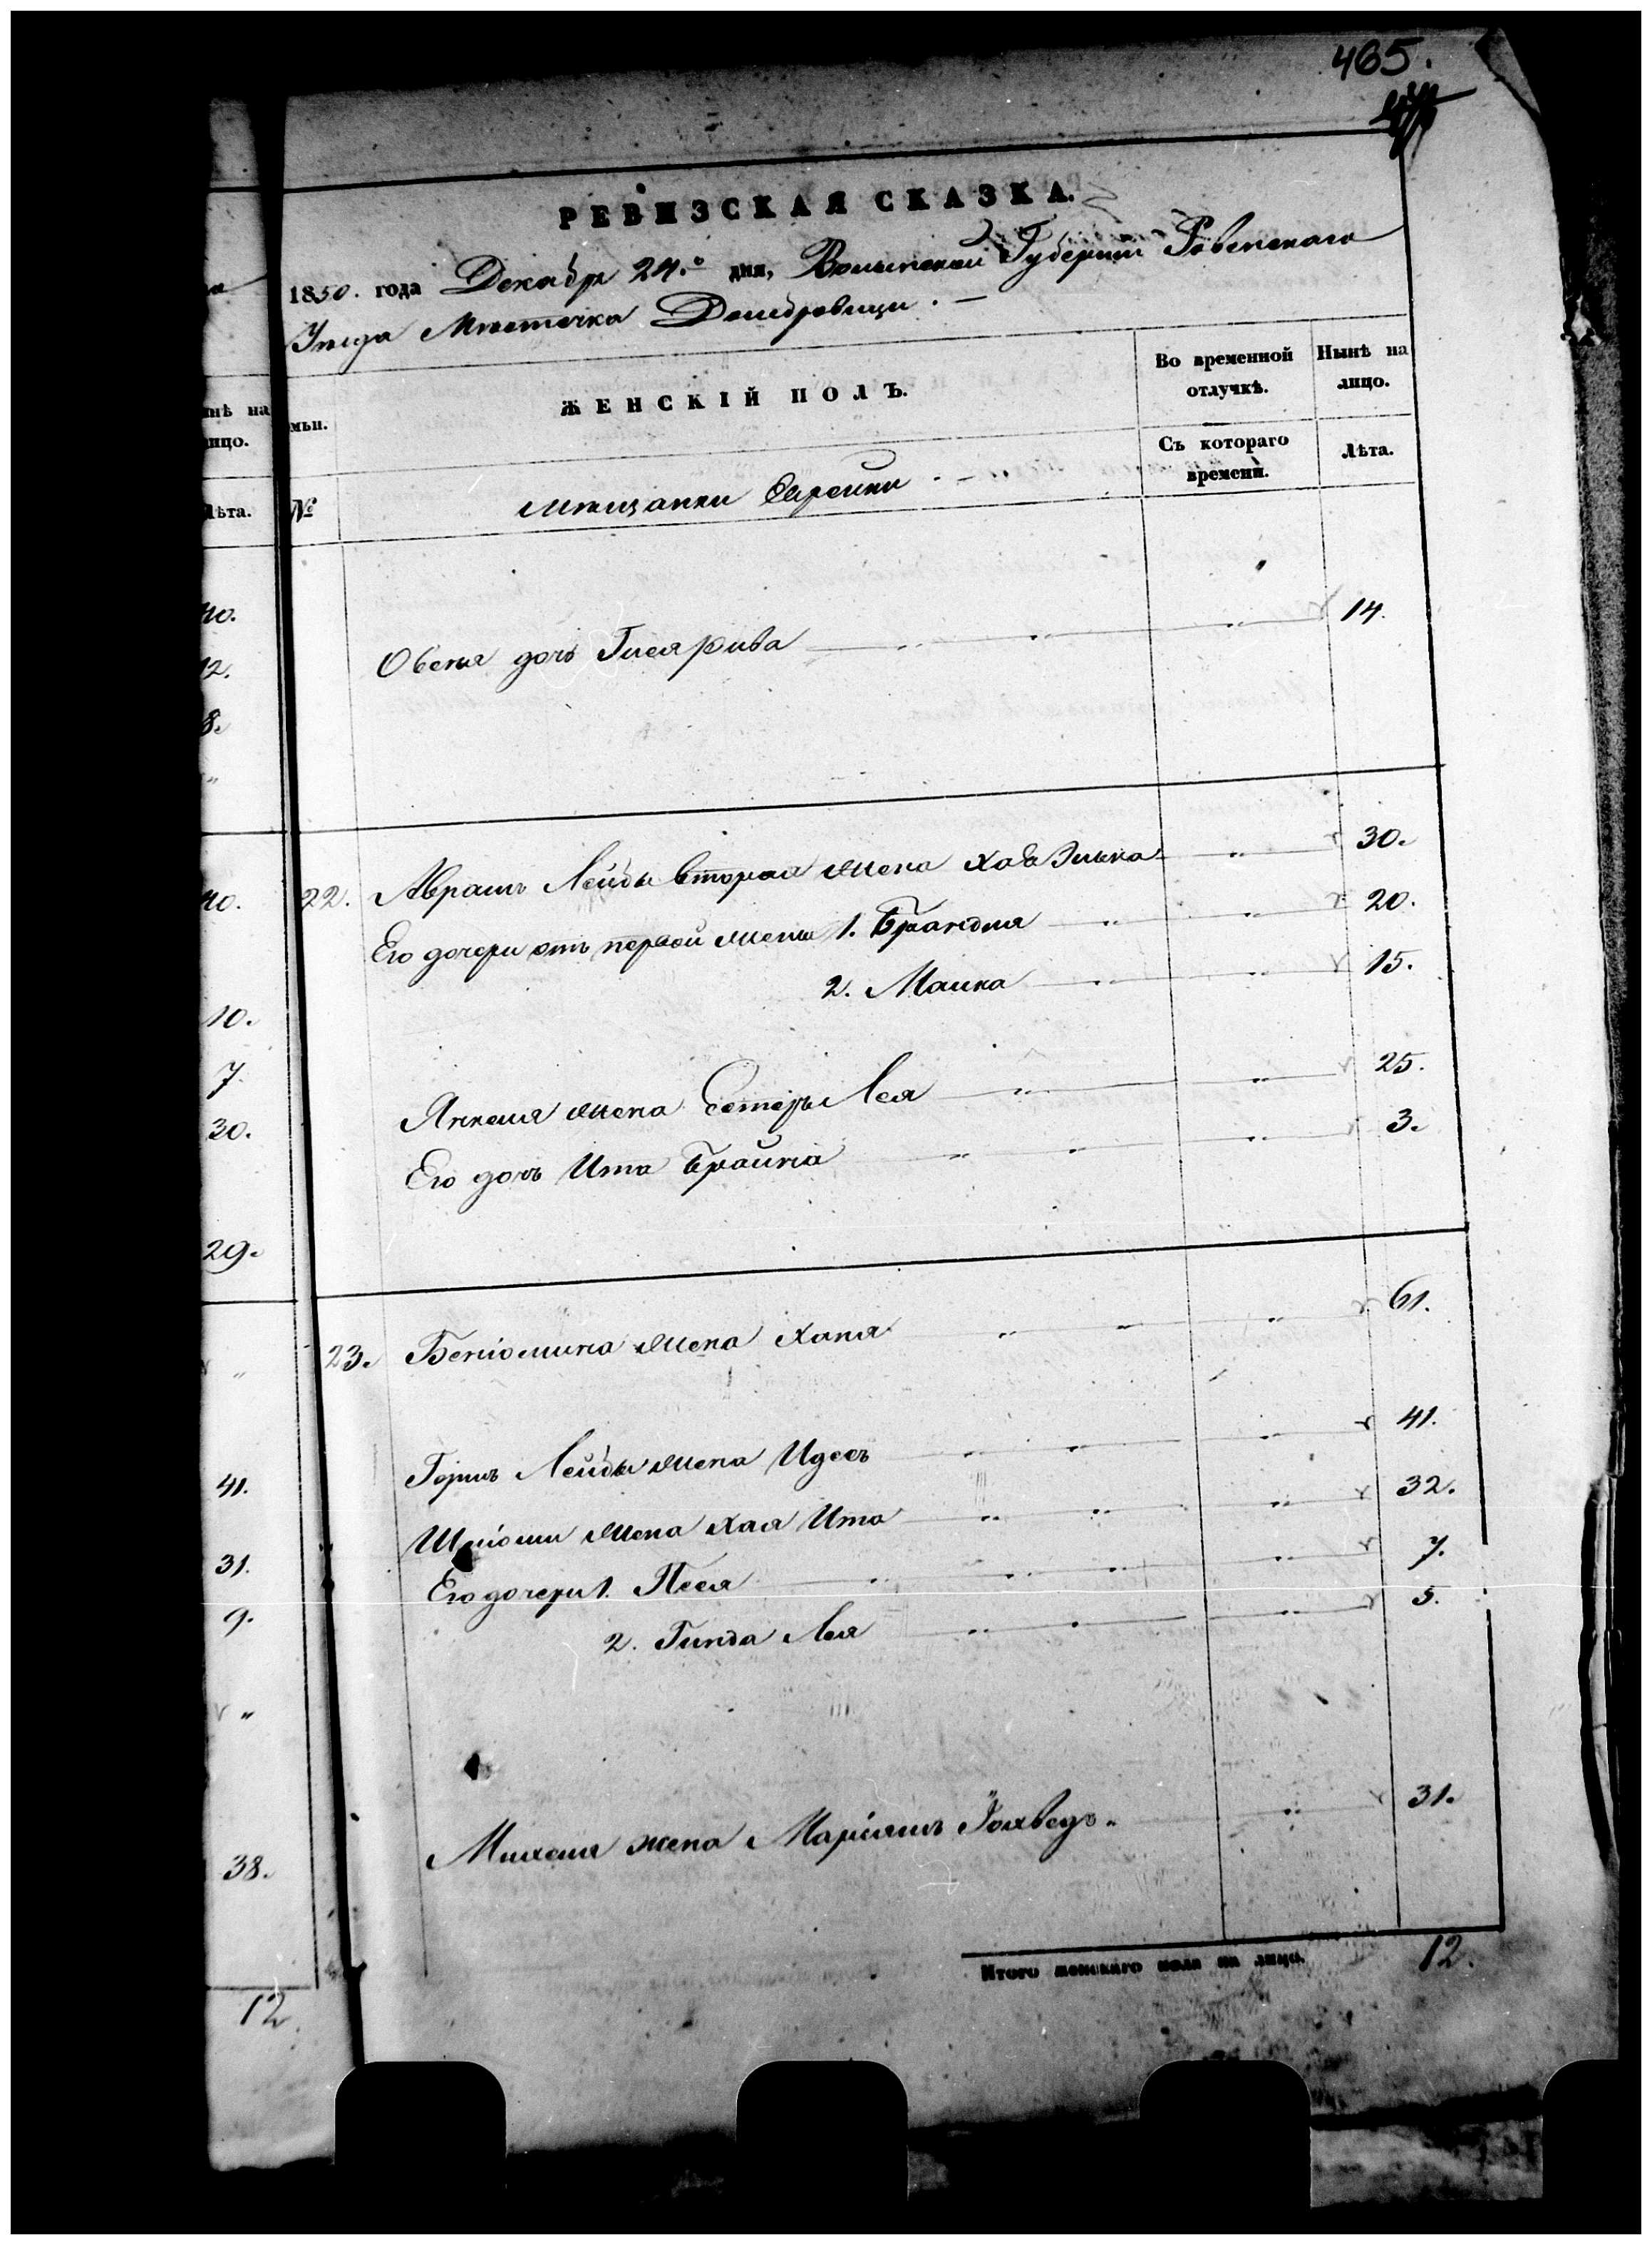 465.
РЕВИЗСКАЯ СКАЗКА.
1850. года Декабря 24.го дня, Волынской Губернии Ровенского
Уезда Местечка Домбровици. —
нѣ на
лицо.
Лѣта.
мьи.
№
ЖЕНСКІЙ ПОЛЪ.
Во временной
отлучкѣ.
Съ котораго
времени.
Нынѣ на
лицо.
Лѣта.
Мѣщанки Еврейки. —
40.
12.
8.
Овсея дочь Гисярива 14.
40.
10.
7.
30.
29.
22. Аврашъ Лейбы вторая жена Хая Элька 30.
Его дочери отъ первой жены 1. Брандля 20.
2. Малка 15.
Янкеля жена Естеръ Лея 25.
Его дочь Ита Брайна 3.
41.
31.
9.
38.
23. Беніомина жена Хана 61.
Гершъ Лейбы жена Идесъ 41.
Шліомы жена Хая Ита 32.
Его дочери 1. Песя 7.
2. Гинда Лея 5.
Михеля жена Маріямъ Іохведъ. 31.
Итого женскаго пола на лицо. 12.
12.